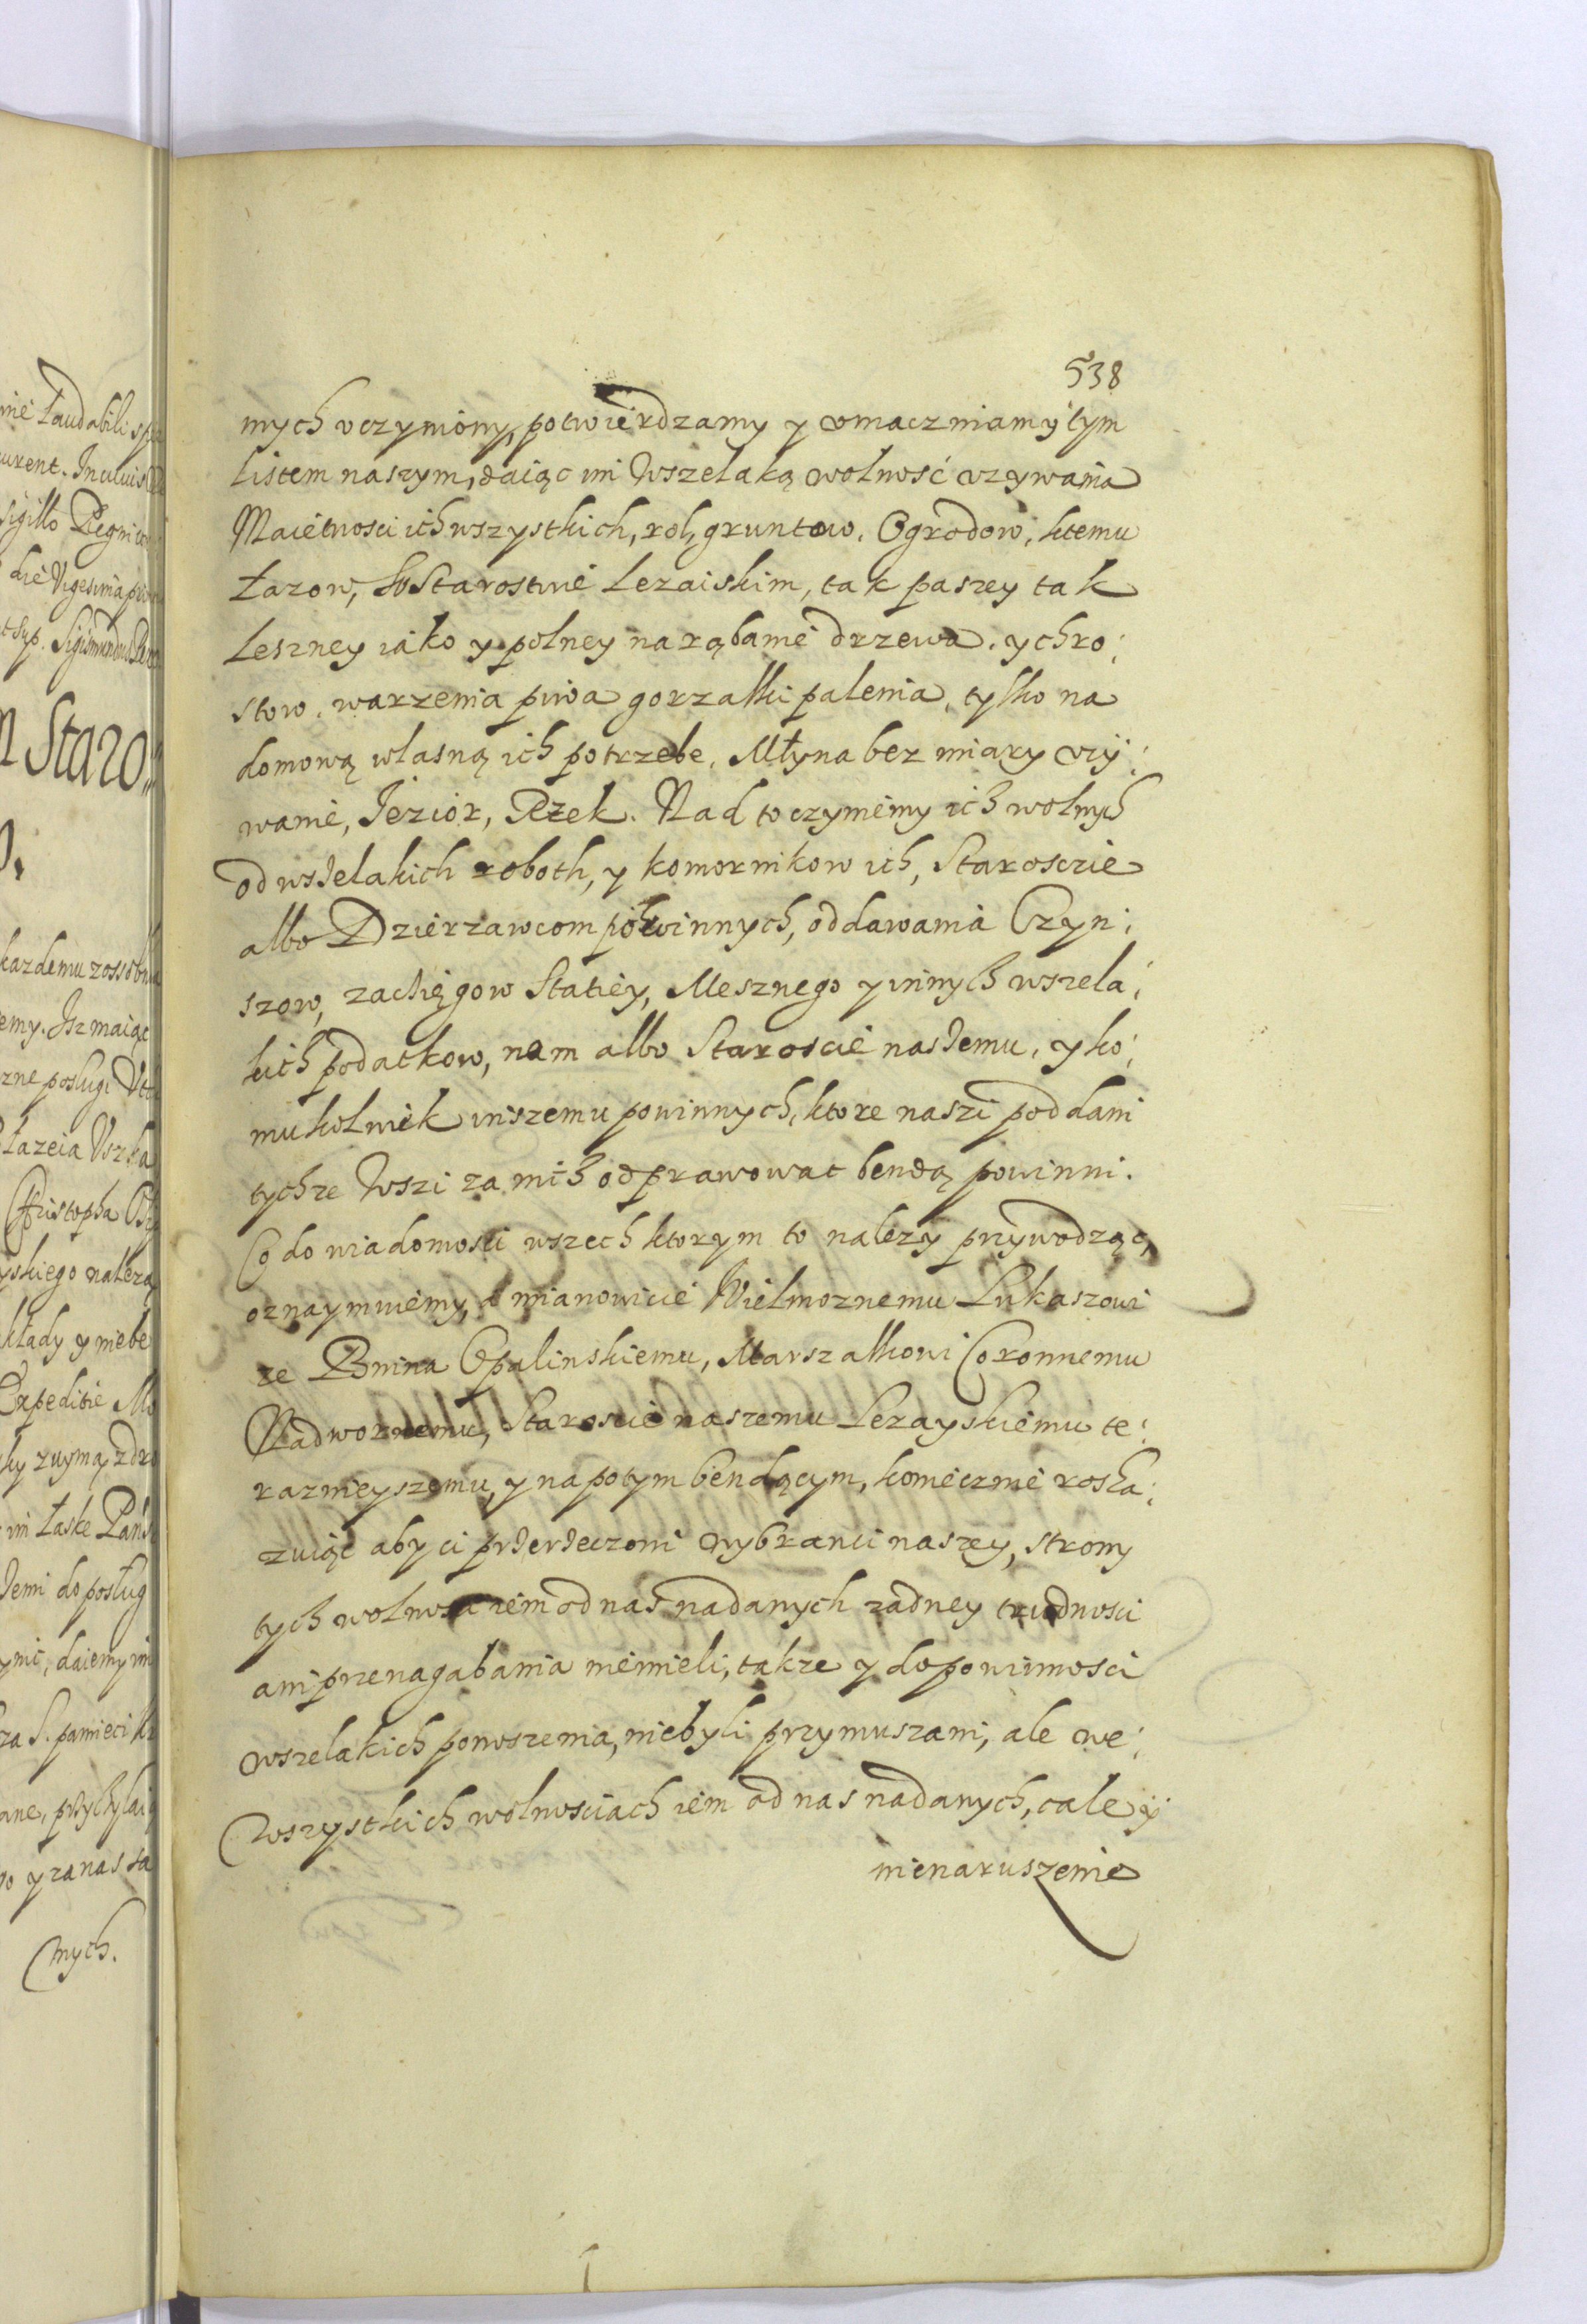 538
mych vczyniony, potwierdzamy y vmaczniamy tym
listem naszym, daiąc im wszelaką wolność vzywania
Maietnosci ich wszystkich, rol, gruntow, Ogrodow, ktemu
Łazow, w Starostwie Lezaiskim, tak paszey tak
Leszney iako y polney na rąbanie drzewa, y chro:
stow, warzenia piwa gorzałki palenia, tylko na
domową własną ich potrzebe, Młyna bez miary vzy:
wanie, Jezior, Rzek. Nad to czyniemy ich wolnych
od wszelakich roboth, y komornikow ich, Staroscie
albo Dzierzawcom powinnych, oddawania Czyn:
szow, zaciięgow Statiey, Mesznego y innych wszela:
kich podatkow, nam albo Staroscie naszemu, y ko:
mukolwiek inszemu powinnych, ktore naszi poddani
tychze Wszi za nich odprawowac bendą powinni.
Co do wiadomosci wszech ktorym to nalezy przywodząc,
oznaymuiemy, a mianowicie Wielmoznemu Lukaszowi
ze Bnina Opalinskiemu, Marszałkowi Coronnemu
Nadwornemu, Staroscie naszemu Lezayskiemu te:
raznieyszemu, y napotym bendącym, koniecznie roska:
zuiąc aby ci przerzeczoni wybranci naszey, strony
tych wolnosci iem od nas nadanych zadney trudnosci
ani przenagabania niemieli, takze y do powinnosci
wszelakich ponoszenia, niebyli przymuszani, ale we
wszystkich wolnosciach iem od nas nadanych, cale y
nienaruszenie
nie Laudabili
sigillo Regni
die Vigesima
Staro
kazdemu zosobna
emy. Isz maiąc
zne posługi
Christopha
yskiego
kłady y niebe
Expeditie
im łaske
do posług
ymi, daiemy im
za S. pamieci
y za nas
mych.